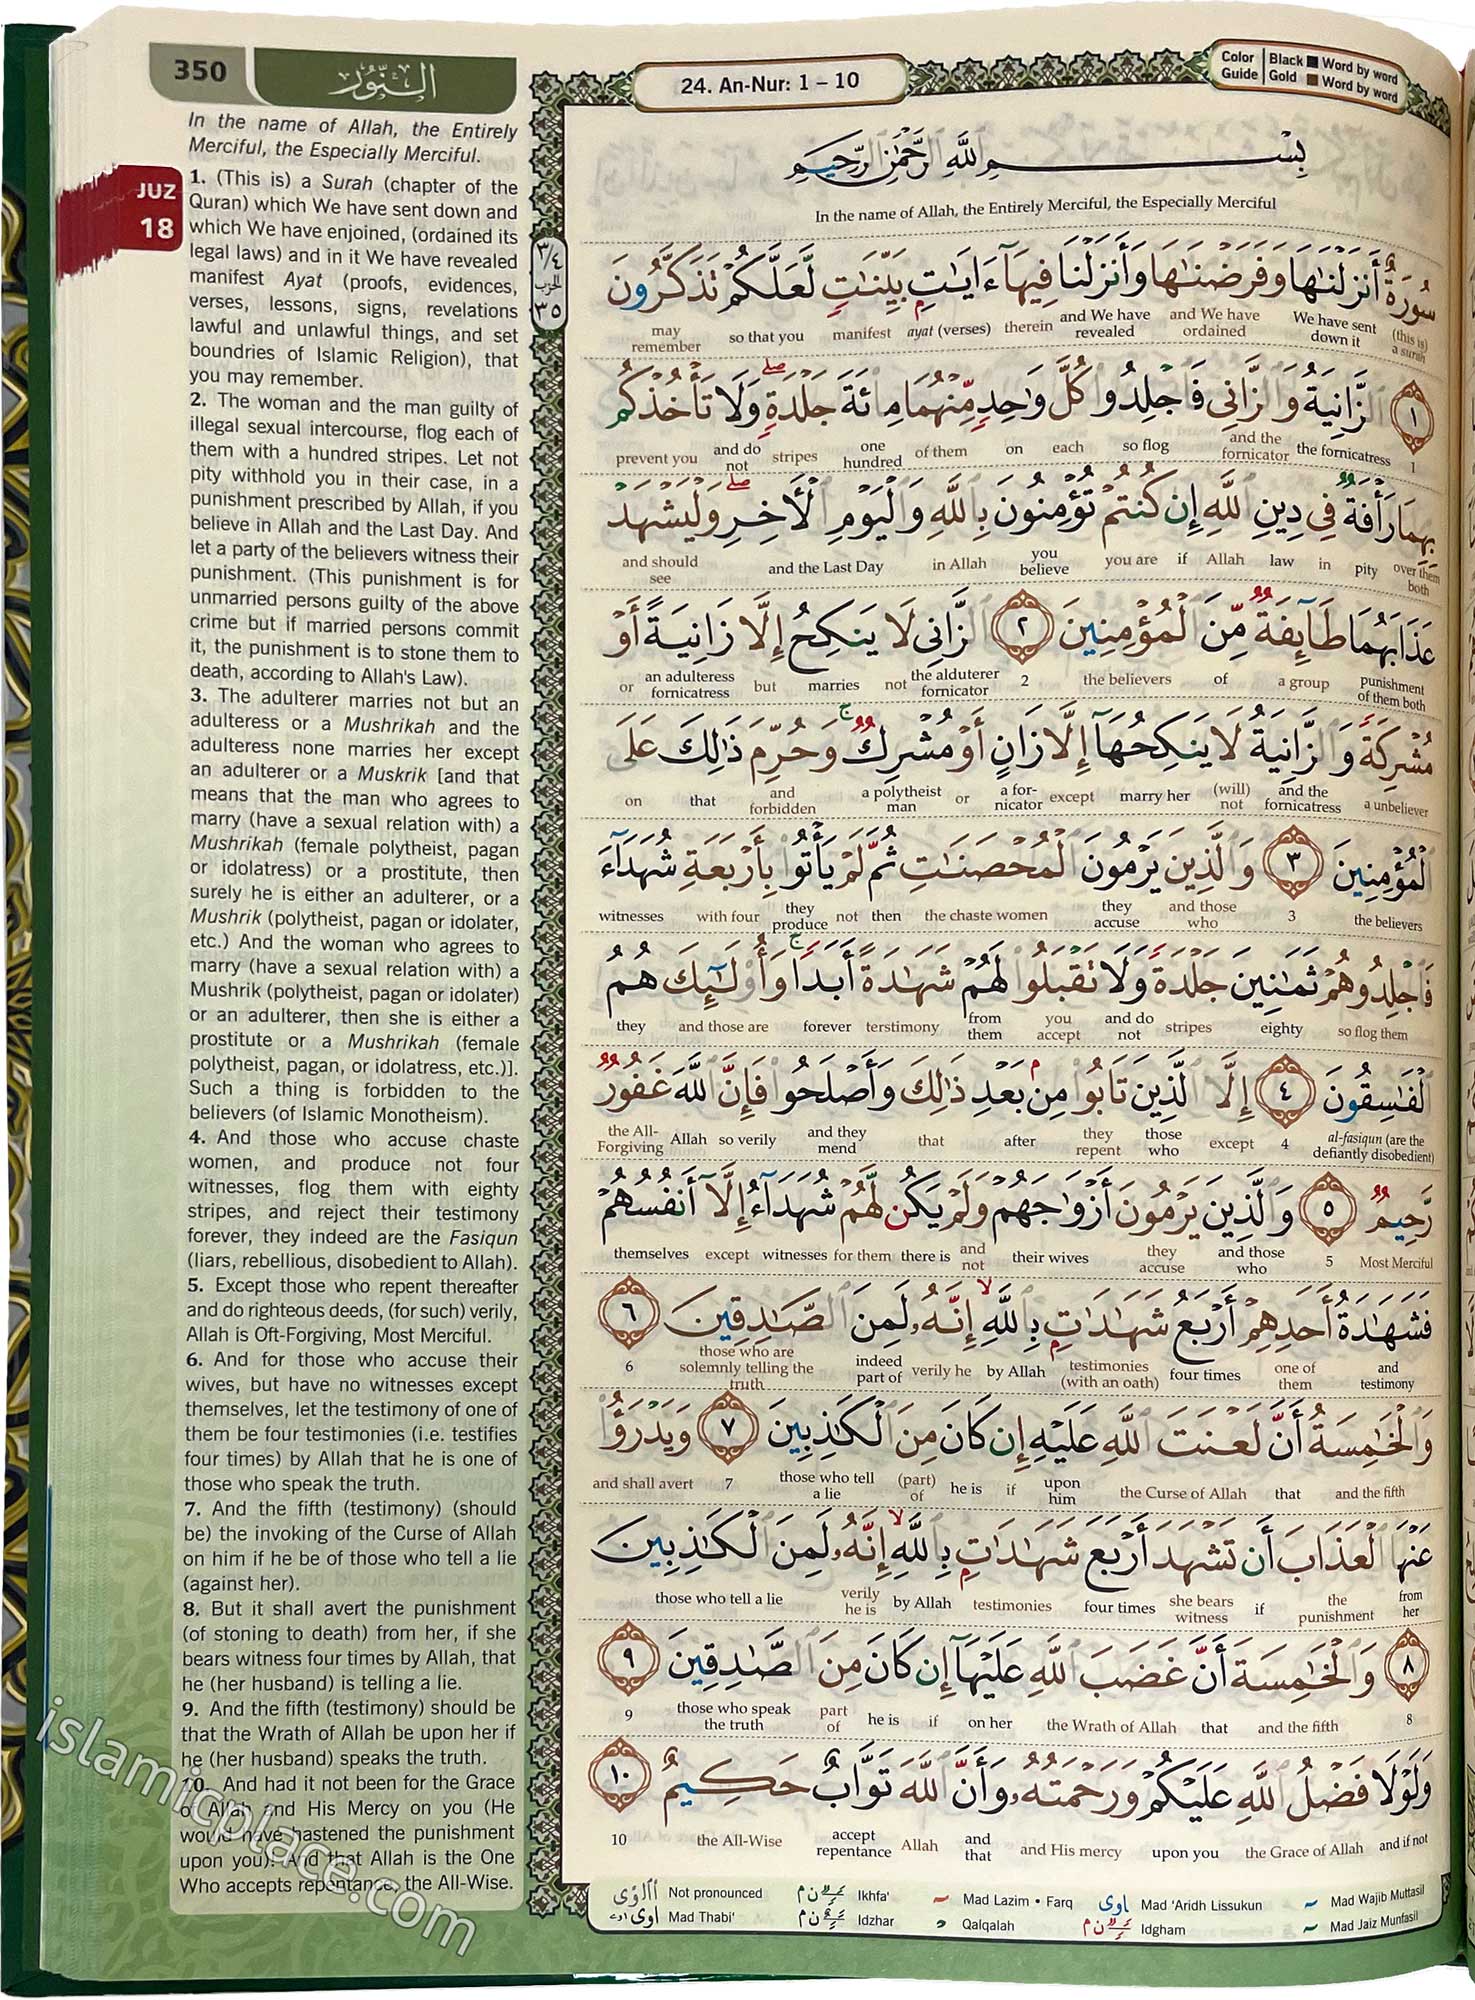 350
النّور
24. An-Nur: 1 – 10
Color Guide
Black Word by word
Gold Word by word
JUZ
18
In the name of Allah, the Entirely
Merciful, the Especially Merciful.
1. (This is) a Surah (chapter of the
Quran) which We have sent down and
which We have enjoined, (ordained its
legal laws) and in it We have revealed
manifest Ayat (proofs, evidences,
verses, lessons, signs, revelations
lawful and unlawful things, and set
boundries of Islamic Religion), that
you may remember.
2. The woman and the man guilty of
illegal sexual intercourse, flog each of
them with a hundred stripes. Let not
pity withhold you in their case, in a
punishment prescribed by Allah, if you
believe in Allah and the Last Day. And
let a party of the believers witness their
punishment. (This punishment is for
unmarried persons guilty of the above
crime but if married persons commit
it, the punishment is to stone them to
death, according to Allah's Law).
3. The adulterer marries not but an
adulteress or a Mushrikah and the
adulteress none marries her except
an adulterer or a Muskrik [and that
means that the man who agrees to
marry (have a sexual relation with) a
Mushrikah (female polytheist, pagan
or idolatress) or a prostitute, then
surely he is either an adulterer, or a
Mushrik (polytheist, pagan or idolater,
etc.) And the woman who agrees to
marry (have a sexual relation with) a
Mushrik (polytheist, pagan or idolater)
or an adulterer, then she is either a
prostitute or a Mushrikah (female
polytheist, pagan, or idolatress, etc.)].
Such a thing is forbidden to the
believers (of Islamic Monotheism).
4. And those who accuse chaste
women, and produce not four
witnesses, flog them with eighty
stripes, and reject their testimony
forever, they indeed are the Fasiqun
(liars, rebellious, disobedient to Allah).
5. Except those who repent thereafter
and do righteous deeds, (for such) verily,
Allah is Oft-Forgiving, Most Merciful.
6. And for those who accuse their
wives, but have no witnesses except
themselves, let the testimony of one of
them be four testimonies (i.e. testifies
four times) by Allah that he is one of
those who speak the truth.
7. And the fifth (testimony) (should
be) the invoking of the Curse of Allah
on him if he be of those who tell a lie
(against her).
8. But it shall avert the punishment
(of stoning to death) from her, if she
bears witness four times by Allah, that
he (her husband) is telling a lie.
9. And the fifth (testimony) should be
that the Wrath of Allah be upon her if
he (her husband) speaks the truth.
10. And had it not been for the Grace
of Allah and His Mercy on you (He
would have hastened the punishment
upon you)! And that Allah is the One
Who accepts repentance, the All-Wise.
٣/٤
الحزب
٣٥
بِسْمِ اللَّهِ الرَّحْمَٰنِ الرَّحِيمِ
In the name of Allah, the Entirely Merciful, the Especially Merciful
سُورَةٌ أَنزَلْنَٰهَا وَفَرَضْنَٰهَا وَأَنزَلْنَا فِيهَآ ءَايَٰتٍۭ بَيِّنَٰتٍ لَّعَلَّكُمْ تَذَكَّرُونَ
(this is) a surah We have sent down it and We have ordained and We have revealed therein ayat (verses) manifest so that you may remember
١ ٱلزَّانِيَةُ وَٱلزَّانِى فَٱجْلِدُوا۟ كُلَّ وَٰحِدٍ مِّنْهُمَا مِا۟ئَةَ جَلْدَةٍ ۖ وَلَا تَأْخُذْكُم
1 the fornicatress and the fornicator so flog each on of them one hundred stripes and do not prevent you
بِهِمَا رَأْفَةٌ فِى دِينِ ٱللَّهِ إِن كُنتُمْ تُؤْمِنُونَ بِٱللَّهِ وَٱلْيَوْمِ ٱلْأَخِرِ ۖ وَلْيَشْهَدْ
over them both pity in law Allah if you are you believe in Allah and the Last Day and should see
عَذَابَهُمَا طَآئِفَةٌ مِّنَ ٱلْمُؤْمِنِينَ ٢ ٱلزَّانِى لَا يَنكِحُ إِلَّا زَانِيَةً أَوْ
punishment of them both a group of the believers 2 the alduterer fornicator not marries but an adulteress fornicatress or
مُشْرِكَةً وَٱلزَّانِيَةُ لَا يَنكِحُهَآ إِلَّا زَانٍ أَوْ مُشْرِكٌ ۚ وَحُرِّمَ ذَٰلِكَ عَلَى
a unbeliever and the fornicatress (will) not marry her except a for-nicator or a polytheist man and forbidden that on
ٱلْمُؤْمِنِينَ ٣ وَٱلَّذِينَ يَرْمُونَ ٱلْمُحْصَنَٰتِ ثُمَّ لَمْ يَأْتُوا۟ بِأَرْبَعَةِ شُهَدَآءَ
the believers 3 and those who they accuse the chaste women then not they produce with four witnesses
فَٱجْلِدُوهُمْ ثَمَٰنِينَ جَلْدَةً وَلَا تَقْبَلُوا۟ لَهُمْ شَهَٰدَةً أَبَدًا ۚ وَأُو۟لَٰٓئِكَ هُمُ
so flog them eighty stripes and do not you accept from them terstimony forever and those are they
ٱلْفَٰسِقُونَ ٤ إِلَّا ٱلَّذِينَ تَابُوا۟ مِنۢ بَعْدِ ذَٰلِكَ وَأَصْلَحُوا۟ فَإِنَّ ٱللَّهَ غَفُورٌ
al-fasiqun (are the defiantly disobedient) 4 except those who they repent after that and they mend so verily Allah the All-Forgiving
رَّحِيمٌ ٥ وَٱلَّذِينَ يَرْمُونَ أَزْوَٰجَهُمْ وَلَمْ يَكُن لَّهُمْ شُهَدَآءُ إِلَّآ أَنفُسُهُمْ
Most Merciful 5 and those who they accuse their wives and not there is for them witnesses except themselves
فَشَهَٰدَةُ أَحَدِهِمْ أَرْبَعُ شَهَٰدَٰتٍۭ بِٱللَّهِ ۙ إِنَّهُۥ لَمِنَ ٱلصَّٰدِقِينَ ٦
and testimony one of them four times testimonies (with an oath) by Allah verily he indeed part of those who are solemnly telling the truth 6
وَٱلْخَٰمِسَةُ أَنَّ لَعْنَتَ ٱللَّهِ عَلَيْهِ إِن كَانَ مِنَ ٱلْكَٰذِبِينَ ٧ وَيَدْرَؤُا۟
and the fifth that the Curse of Allah upon him if he is (part) of those who tell a lie 7 and shall avert
عَنْهَا ٱلْعَذَابَ أَن تَشْهَدَ أَرْبَعَ شَهَٰدَٰتٍۭ بِٱللَّهِ ۙ إِنَّهُۥ لَمِنَ ٱلْكَٰذِبِينَ
from her the punishment if she bears witness four times testimonies by Allah verily he is those who tell a lie
٨ وَٱلْخَٰمِسَةَ أَنَّ غَضَبَ ٱللَّهِ عَلَيْهَآ إِن كَانَ مِنَ ٱلصَّٰدِقِينَ ٩
8 and the fifth that the Wrath of Allah on her if he is part of those who speak the truth 9
وَلَوْلَا فَضْلُ ٱللَّهِ عَلَيْكُمْ وَرَحْمَتُهُۥ وَأَنَّ ٱللَّهَ تَوَّابٌ حَكِيمٌ ١٠
and if not the Grace of Allah upon you and His mercy and that Allah accept repentance the All-Wise 10
Not pronounced Ikhfa' Mad Lazim • Farq Mad 'Aridh Lissukun Mad Wajib Muttasil
Mad Thabi' Idzhar Qalqalah Idgham Mad Jaiz Munfasil
islamicplace.com